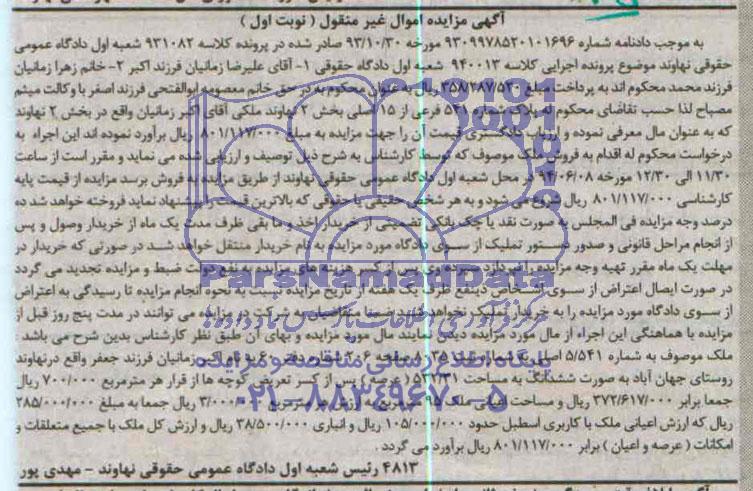 آگهی مزایده اموال غیر منقول ( نوبت اول )
به موجب دادنامه شماره ۹۳۰۹۹۷۸۵۲۰۱۰۱۶۹۶ مورخه ۹۳/۱۰/۳۰ صادر شده در پرونده کلاسه ۹۳۱۰۸۲ شعبه اول دادگاه عمومی
حقوقی نهاوند موضوع پرونده اجرایی کلاسه ۹۴۰۰۱۳ شعبه اول دادگاه حقوقی ۱- آقای علیرضا زمانیان فرزند اکبر ۲- خانم زهرا زمانیان
فرزند محمد محکوم اند به پرداخت مبلغ ۳۵۸/۲۸۷/۵۲۰ ریال به عنوان محکوم به در حق خانم معصومه ابوالفتحی فرزند اصغر با وکالت میثم
مصباح لذا حسب تقاضای محکوم له پلاک شماره ۵۴۱ فرعی از ۱۵ اصلی بخش ۲ نهاوند ملکی آقای اکبر زمانیان واقع در بخش ۲ نهاوند
که به عنوان مال معرفی نموده و ارزیاب دادگستری قیمت آن را جهت مزایده به مبلغ ۸۰۱/۱۱۷/۰۰۰ ریال برآورد نموده اند این اجراء به
درخواست محکوم له اقدام به فروش ملک موصوف که توسط کارشناس به شرح ذیل توصیف و ارزیابی شده می نماید و مقرر است از ساعت
۱۱/۳۰ الی ۱۲/۳۰ مورخه ۹۴/۰۶/۰۸ در محل شعبه اول دادگاه عمومی حقوقی نهاوند از طریق مزایده به فروش برسد مزایده از قیمت پایه
کارشناسی ۸۰۱/۱۱۷/۰۰۰ ریال شروع می شود و به هر شخص حقیقی یا حقوقی که بالاترین قیمت را پیشنهاد نماید فروخته خواهد شد ده
درصد وجه مزایده فی المجلس به صورت نقد یا چک بانکی تضمینی از خریدار اخذ و ما بقی ظرف مدت یک ماه از خریدار وصول و پس
از انجام مراحل قانونی و صدور دستور تملیک از سوی دادگاه مورد مزایده به نام خریدار منتقل خواهد شد در صورتی که خریدار در
مهلت یک ماه مقرر تهیه وجه مزایده را نپردازد سپرده وی پس از کسر هزینه های مزایده به نفع دولت ضبط و مزایده تجدید می گردد
در صورت ایصال اعتراض از سوی اشخاص ذینفع ظرف یک هفته از تاریخ مزایده نسبت به نحوه انجام مزایده تا رسیدگی به اعتراض
از سوی دادگاه مورد مزایده را به خریدار تملیک نخواهد شد ضمنا متقاضیان به شرکت در مزایده می توانند در مدت پنج روز قبل از
مزایده با هماهنگی این اجراء از مال مورد مزایده دیدن نمایند مال مورد مزایده و بهای آن طبق نظر کارشناس بدین شرح می باشد :
ملک موصوف به شماره ۵/۵۴۱ اصلی به شماره ثبت ۸۰۳۵ صفحه ۲۰۶ دفتر ۶۰ به نام اکبر زمانیان فرزند جعفر واقع درنهاوند
روستای جهان آباد به صورت ششدانگ به مساحت ۵۳۲/۳۱ (عرصه) پس از کسر تعریض کوچه ها از قرار هر مترمربع ۷۰۰/۰۰۰ ریال
جمعا برابر ۳۷۲/۶۱۷/۰۰۰ ریال و مساحت اعیانی ملک ۹۵ به ارزش هر مترمربع ۳/۰۰۰/۰۰۰ ریال جمعا به مبلغ ۲۸۵/۰۰۰/۰۰۰
ریال که ارزش اعیانی ملک با کاربری اسطبل حدود ۱۰۵/۰۰۰/۰۰۰ ریال و انباری ۳۸/۵۰۰/۰۰۰ ریال و ارزش کل ملک با جمیع متعلقات و
امکانات ( عرصه و اعیان ) برابر ۸۰۱/۱۱۷/۰۰۰ ریال برآورد می گردد .
۴۸۱۳ رئیس شعبه اول دادگاه عمومی حقوقی نهاوند - مهدی پور
ParsNamadData
پایگاه اطلاع رسانی مناقصه و مزایده
۰۲۱-۸۸۳۴۹۶۷۰-۵